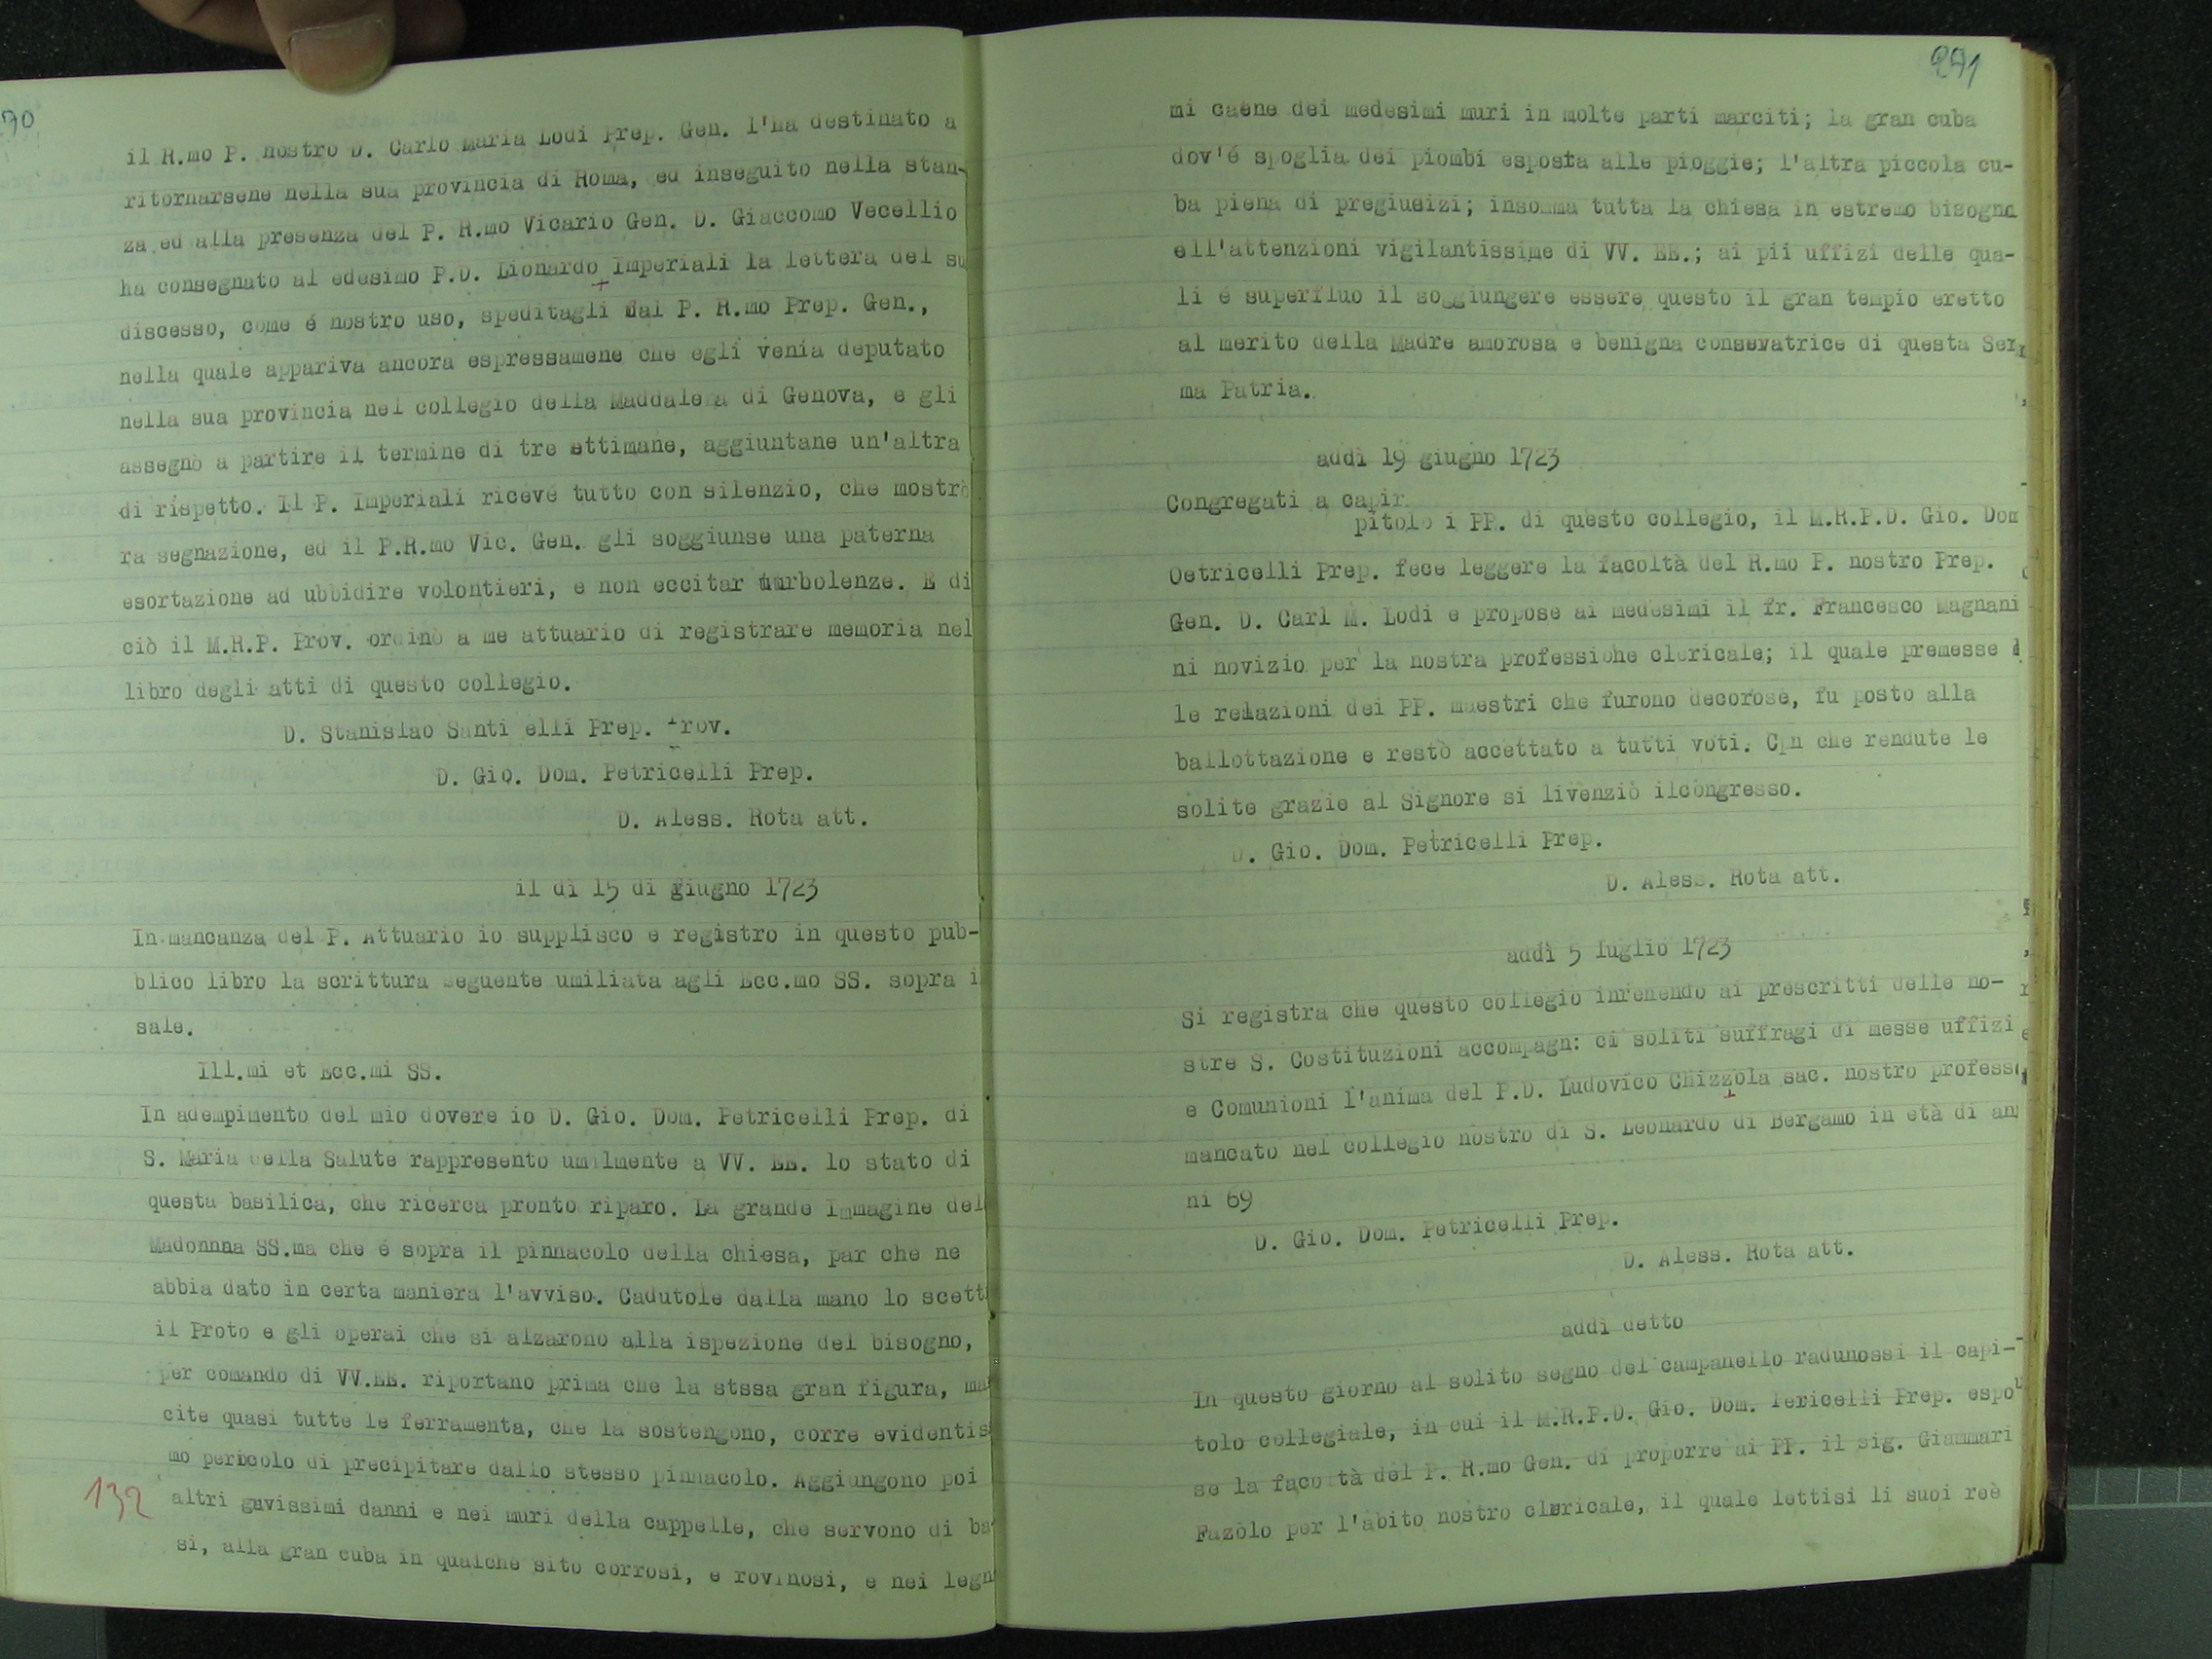 70
il R.mo P. nostro D. Carlo Maria Lodi Prep. Gen. l'ha destinato a
ritornarsene nella sua provincia di Roma, ed inseguito nella stan-
za ed alla presenza del P. R.mo Vicario Gen. D. Giaccomo Vecellio
ha consegnato al edesimo P.D. Lionardo Imperiali la lettera del su
discesso, come é nostro uso, speditagli dal P. R.mo Prep. Gen.,
nella quale appariva ancora espressamene che egli venia deputato
nella sua provincia nel collegio della Maddalena di Genova, e gli
assegnò a partire il termine di tre ettimane, aggiuntane un'altra
di rispetto. Il P. Imperiali ricevé tutto con silenzio, che mostrò
ra segnazione, ed il P.R.mo Vic. Gen. gli soggiunse una paterna
esortazione ad ubbidire volontieri, e non eccitar turbolenze. E di
ciò il M.R.P. Prov. ordinò a me attuario di registrare memoria nel
libro degli atti di questo collegio.
D. Stanislao Santi elli Prep. Prov.
D. Gio. Dom. Petricelli Prep.
D. Aless. Rota att.
il dì 15 di giugno 1723
In mancanza del P. Attuario io supplisco e registro in questo pub-
blico libro la scrittura seguente umiliata agli Ecc.mo SS. sopra i
sale.
Ill.mi et Ecc.mi SS.
In adempimento del mio dovere io D. Gio. Dom. Petricelli Prep. di
S. Maria della Salute rappresento umilmente a VV. EE. lo stato di
questa basilica, che ricerca pronto riparo. La grande Immagine del
Madonnna SS.ma che é sopra il pinnacolo della chiesa, par che ne
abbia dato in certa maniera l'avviso. Cadutole dalla mano lo scett
il Proto e gli operai che si alzarono alla ispezione del bisogno,
per comando di VV.EE. riportano prima che la stssa gran figura, ma
cite quasi tutte le ferramenta, che la sostengono, corre evidentis
mo pericolo di precipitare dallo stesso pinnacolo. Aggiungono poi
132
altri gavissimi danni e nei muri della cappelle, che servono di ba
si, alla gran cuba in qualche sito corrosi, e rovinosi, e nei legn
271
mi caene dei medesimi muri in molte parti marciti; la gran cuba
dov'é spoglia dei piombi esposta alle pioggie; l'altra piccola cu-
ba piena di pregiudizi; insomma tutta la chiesa in estremo bisogno
ell'attenzioni vigilantissime di VV. EE.; ai pii uffizi delle qua-
li é superfluo il soggiungere essere questo il gran tempio eretto
al merito della Madre amorosa e benigna consevatrice di questa Ser
ma Patria.
addì 19 giugno 1723
Congregati a capir
pitolo i PP. di questo collegio, il M.R.P.D. Gio. Dom
Oetricelli Prep. fece leggere la facoltà del R.mo P. nostro Prep.
Gen. D. Carl M. Lodi e propose ai medesimi il fr. Francesco Magnani
ni novizio per la nostra professione clericale; il quale premesse
le relazioni dei PP. maestri che furono decorose, fu posto alla
ballottazione e restò accettato a tutti voti. Con che rendute le
solite grazie al Signore si livenziò ilcongresso.
D. Gio. Dom. Petricelli Prep.
D. Aless. Rota att.
addì 5 luglio 1723
Si registra che questo collegio inrenendo ai prescritti delle no-
stre S. Costituzioni accompagn: ci soliti suffragi di messe uffizi
e Comunioni l'anima del P.D. Ludovico Chizzola sac. nostro profess
mancato nel collegio nostro di S. Leonardo di Bergamo in età di an
ni 69
D. Gio. Dom. Petricelli Prep.
D. Aless. Rota att.
addì detto
In questo giorno al solito segno del campanello radunossi il capi-
tolo collegiale, in cui il M.R.P.D. Gio. Dom. Pericelli Prep. espo
se la faco tà del P. R.mo Gen. di proporre ai PP. il sig. Giammari
Fazolo per l'abito nostro clericale, il quale lettisi li suoi reè